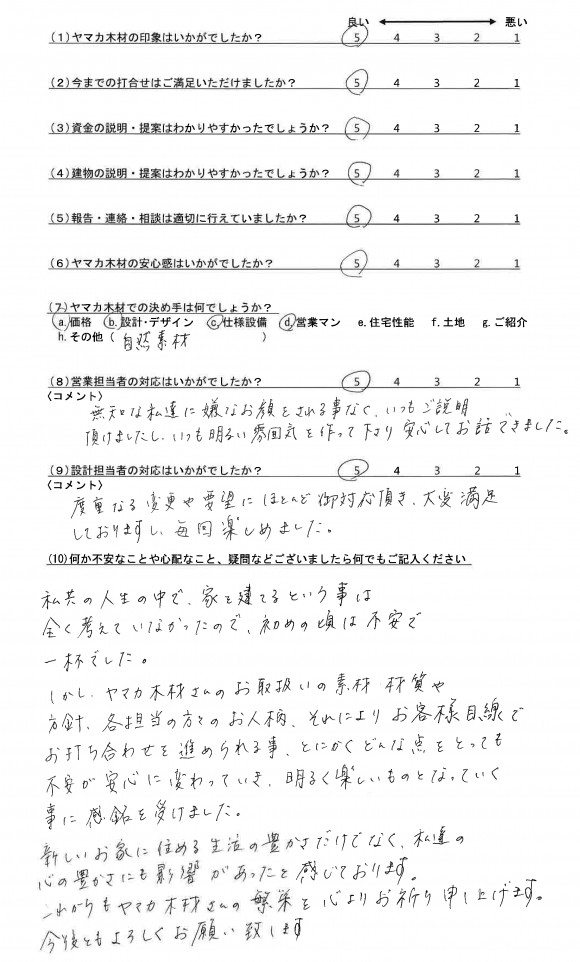 良い ←→ 悪い
(1)ヤマカ木材の印象はいかがでしたか？ 5 4 3 2 1
(2)今までの打合せはご満足いただけましたか？ 5 4 3 2 1
(3)資金の説明・提案はわかりやすかったでしょうか？ 5 4 3 2 1
(4)建物の説明・提案はわかりやすかったでしょうか？ 5 4 3 2 1
(5)報告・連絡・相談は適切に行えていましたか？ 5 4 3 2 1
(6)ヤマカ木材の安心感はいかがでしたか？ 5 4 3 2 1
(7)ヤマカ木材での決め手は何でしょうか？
a.価格 b.設計・デザイン c.仕様設備 d.営業マン e.住宅性能 f.土地 g.ご紹介
h.その他（自然素材）
(8)営業担当者の対応はいかがでしたか？ 5 4 3 2 1
〈コメント〉
無知な私達に嫌なお顔をされる事なく、いつもご説明
頂けましたし、いつも明るい雰囲気を作って下さり安心してお話できました。
(9)設計担当者の対応はいかがでしたか？ 5 4 3 2 1
〈コメント〉
度重なる変更や要望にほとんど御対応頂き、大変満足
しておりますし、毎回楽しめました。
(10)何か不安なことや心配なこと、疑問などございましたら何でもご記入ください
私共の人生の中で、家を建てるという事は
全く考えていなかったので、初めの頃は不安で
一杯でした。
しかし、ヤマカ木材さんのお取扱いの素材 材質や
方針、各担当の方々のお人柄、それによりお客様目線で
お打ち合わせを進められる事、とにかくどんな点をとっても
不安が安心に変わっていき、明るく楽しいものとなっていく
事に感銘を受けました。
新しいお家に住める生活の豊かさだけでなく、私達の
心の豊かさにも影響があったと感じております。
これからもヤマカ木材さんの繁栄を心よりお祈り申し上げます。
今後ともよろしくお願い致します